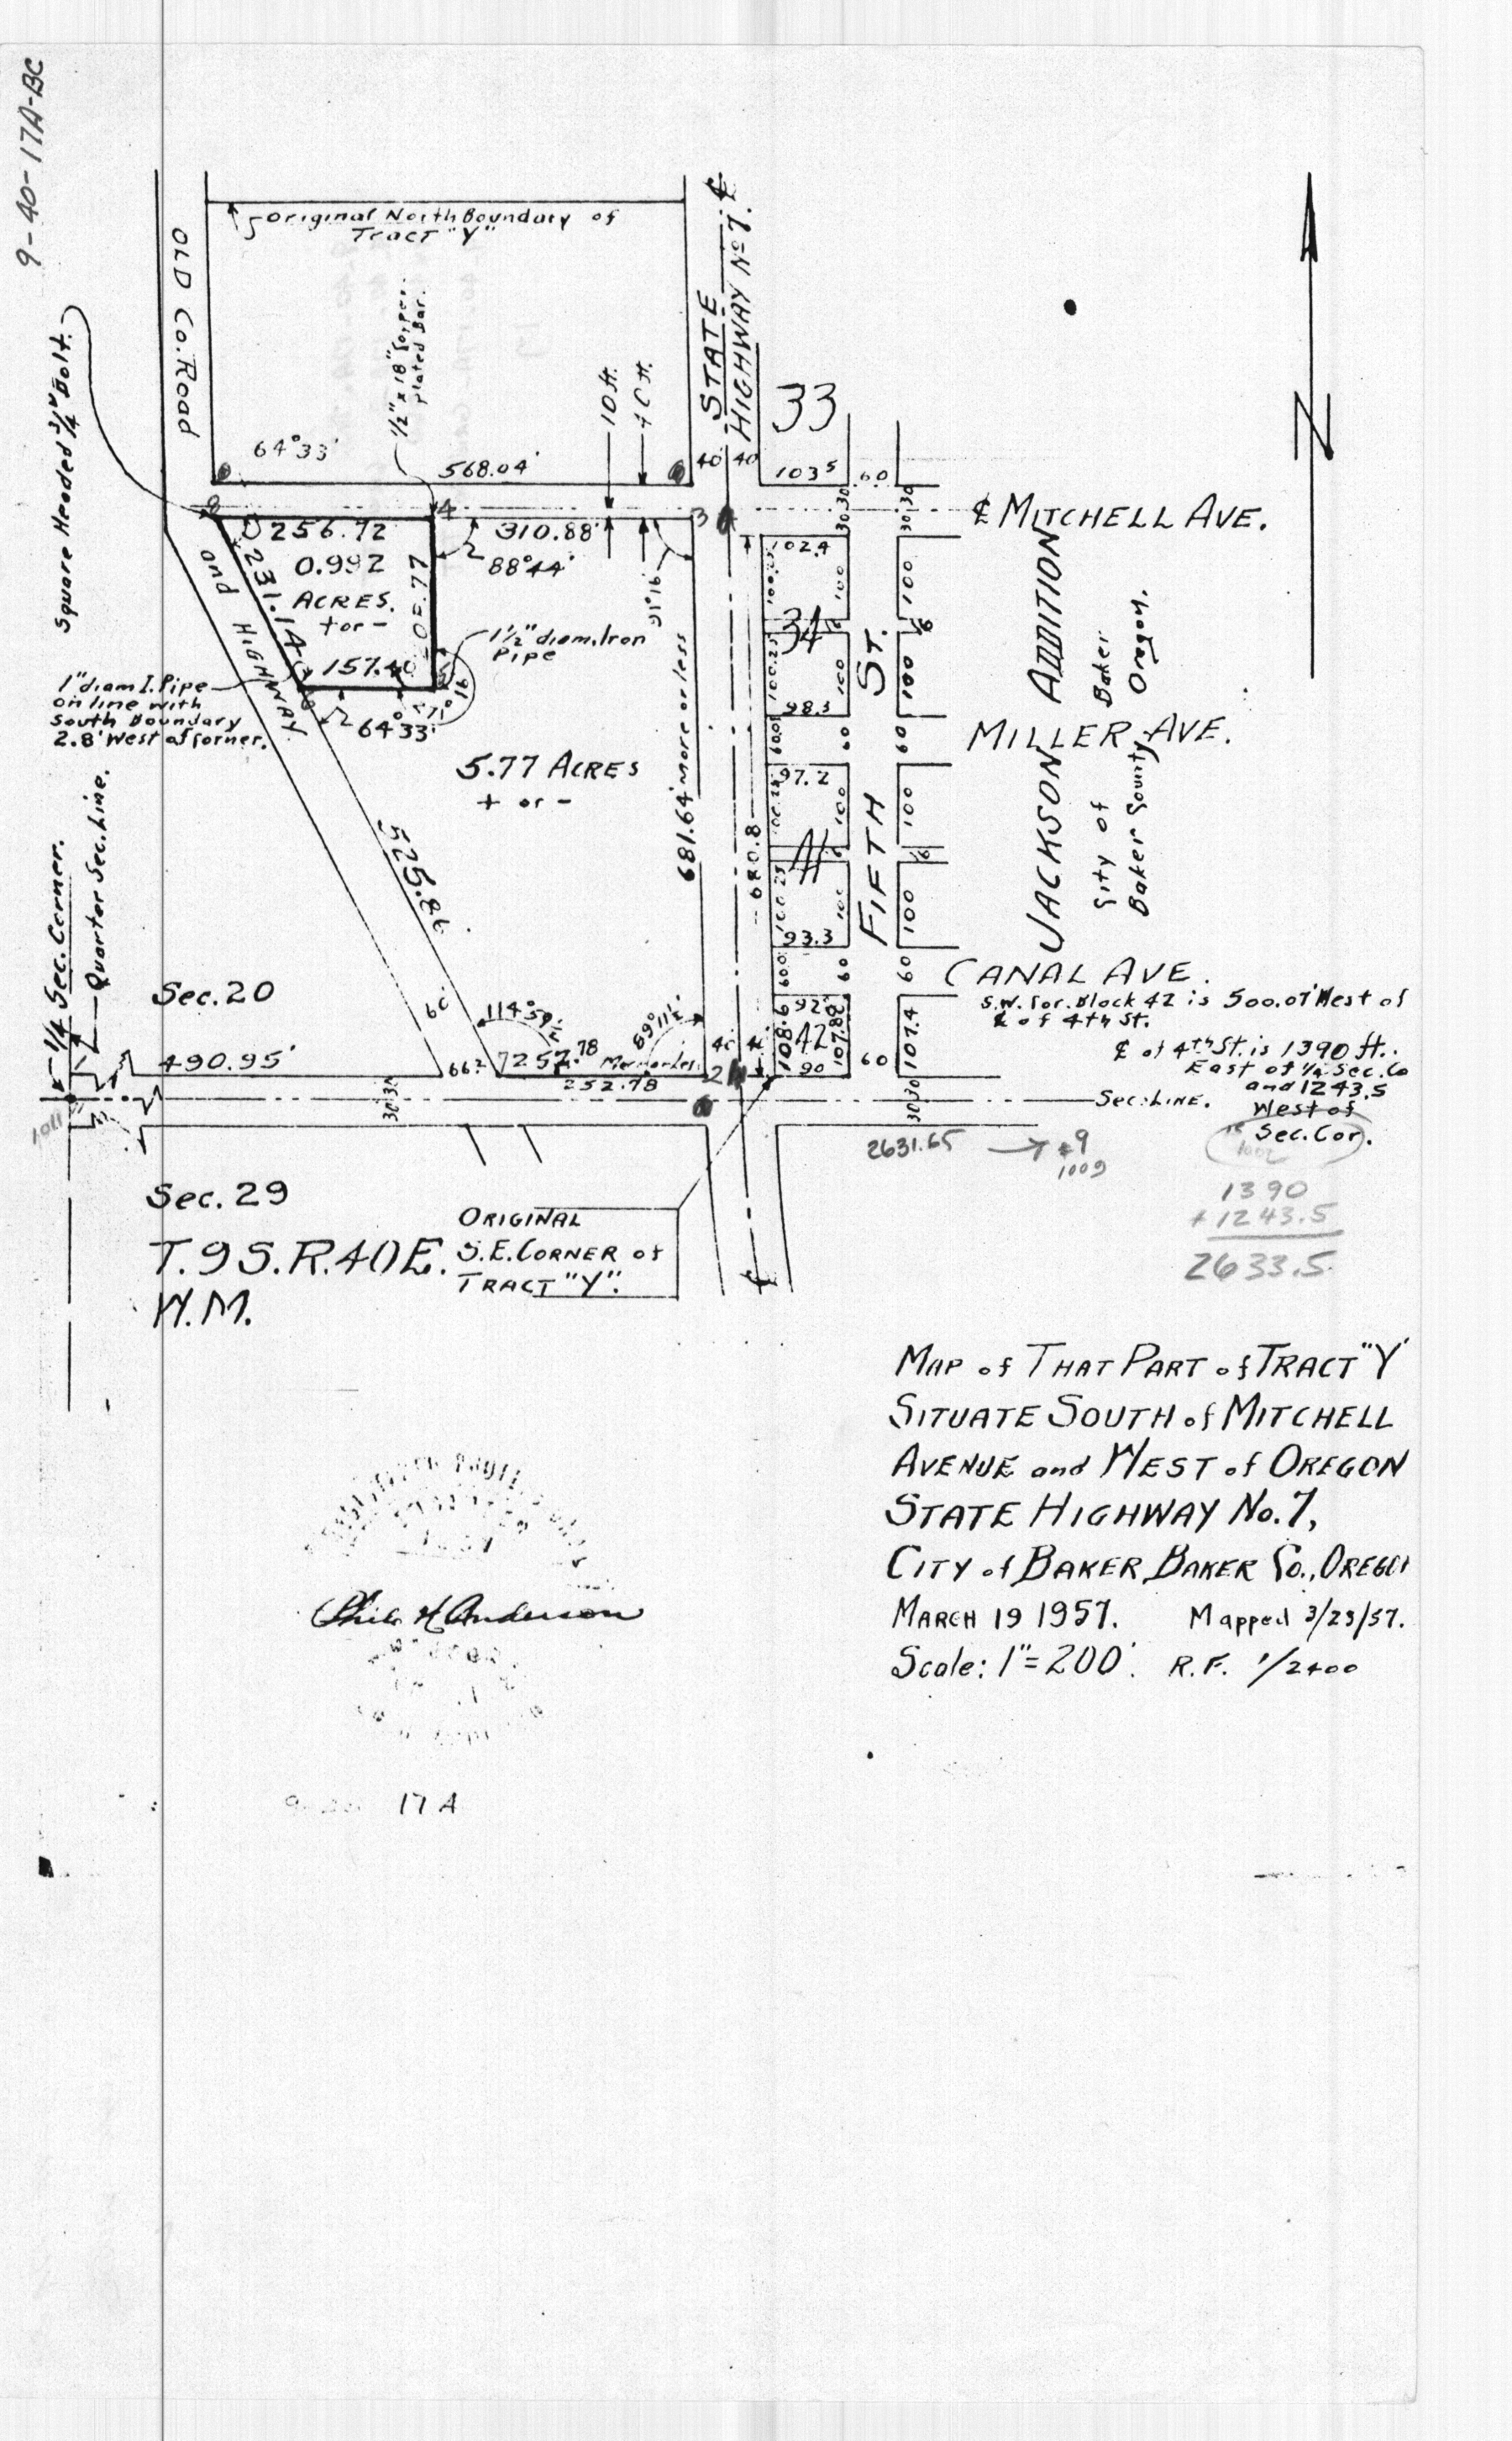 9-40-17A-BC
Original North Boundary of
Tract "Y"
OLD Co. Road
and HIGHWAY
Square Headed 3/4" Bolt.
1/2" x 18" Copper
plated Bar.
10 ft.
STATE
HIGHWAY No 7.
℄
33
64°33'
568.04'
40 40
103.5
60
30 30
30 30
℄ MITCHELL AVE.
256.72
310.88'
0.992
ACRES.
+ or -
231.14
88°44'
91°16'
157.40
1 1/2" diam. Iron
Pipe
1" diam I. Pipe
on line with
South Boundary
2.8' West of Corner.
64°33'
5.77 ACRES
+ or -
681.64' more or less
680.8
525.86
102.4
100
100
34
16
100.25
100
100
98.3
60
60
MILLER AVE.
97.2
100
100
16
100.25
100
93.3
60
60
FIFTH ST.
JACKSON ADDITION
City of Baker
Baker County Oregon.
CANAL AVE.
S.W. Cor. Block 42 is 500.07' West of
℄ of 4th St.
℄ of 4th St. is 1390 ft.
East of 1/4 Sec. Co
and 1243.5
West of
Sec. Cor.
92
108.6
42
107.82
107.4
90
60
1/4 Sec. Corner.
Quarter Sec. Line.
Sec. 20
490.95'
60'
66.2
114°59½'
89°11½'
257.78
More or less
252.78
30 30
30 30
Sec. LINE.
1011
2631.65 → #9
1009
1390
+ 1243.5
2633.5
Sec. 29
T. 9 S. R. 40 E.
W.M.
ORIGINAL
S.E. CORNER of
TRACT "Y".
℄
MAP of THAT PART of TRACT "Y"
SITUATE SOUTH of MITCHELL
AVENUE and WEST of OREGON
STATE HIGHWAY No. 7,
CITY of BAKER, BAKER Co., OREGON
MARCH 19 1957. Mapped 3/23/57.
Scale: 1" = 200'. R.F. 1/2400
Phil H Anderson
17 A
N